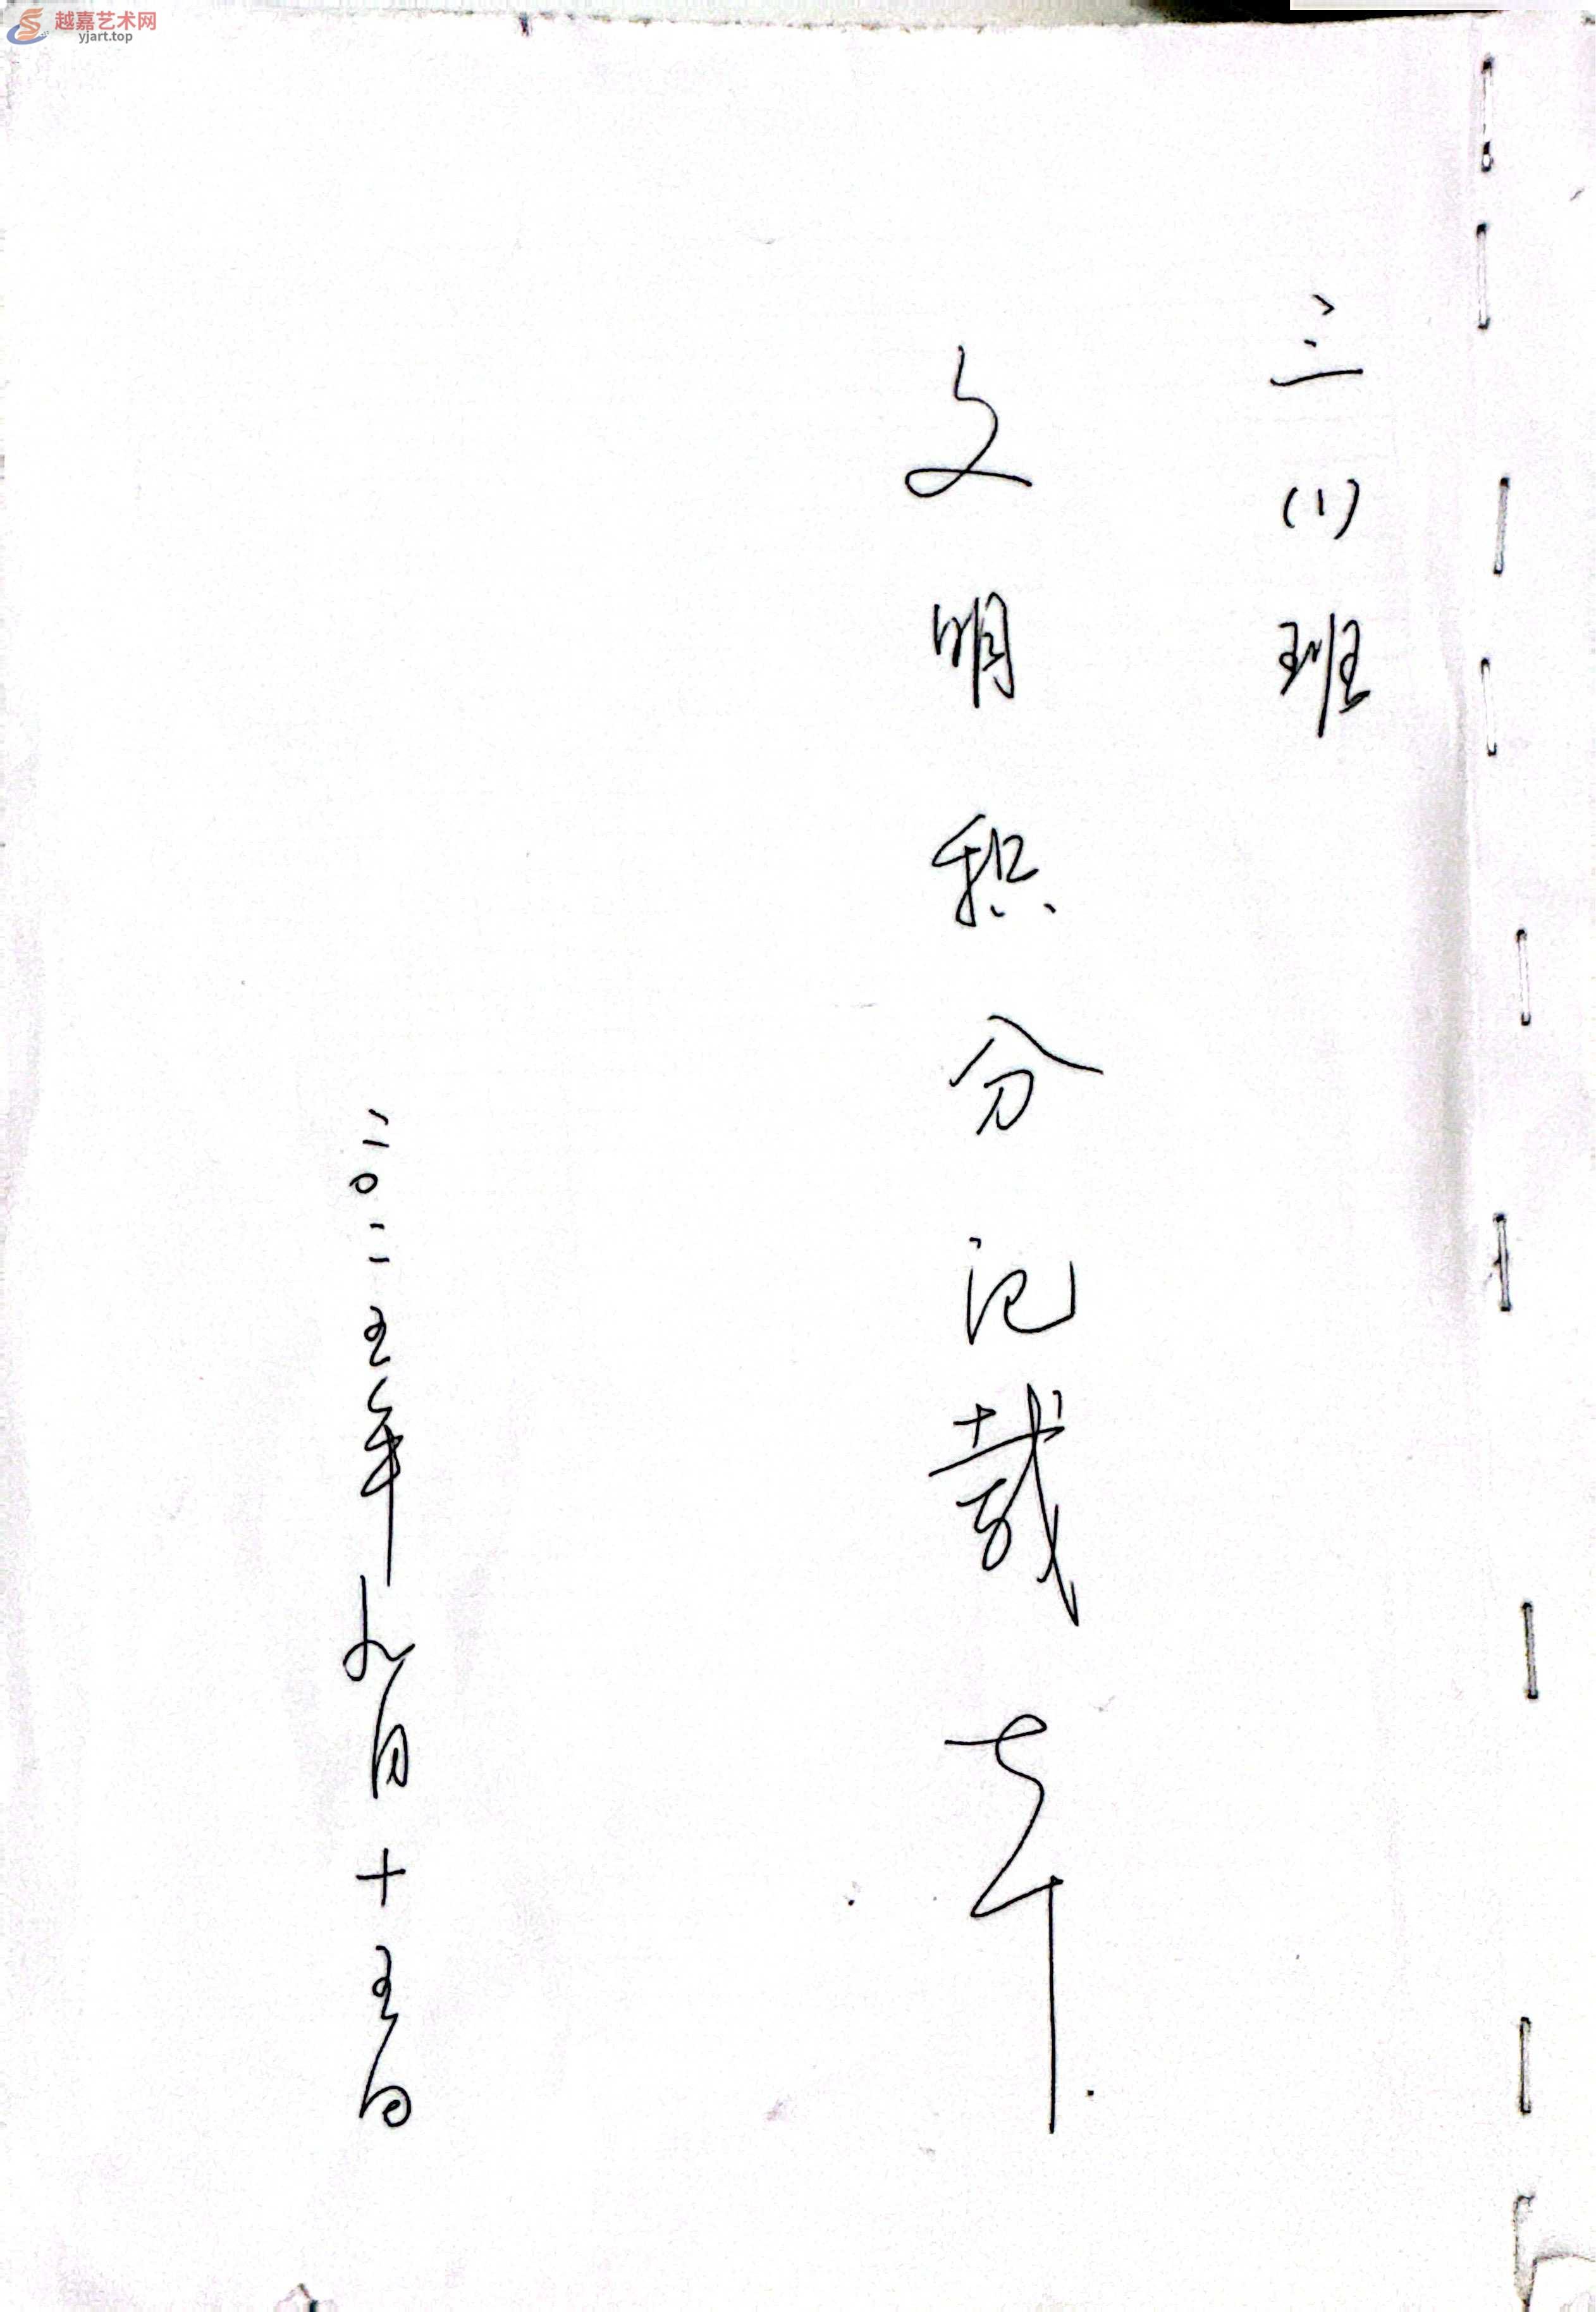 越嘉艺术网
yjart.top
三(1)班
文明积分记载本
二〇二五年九月十五日